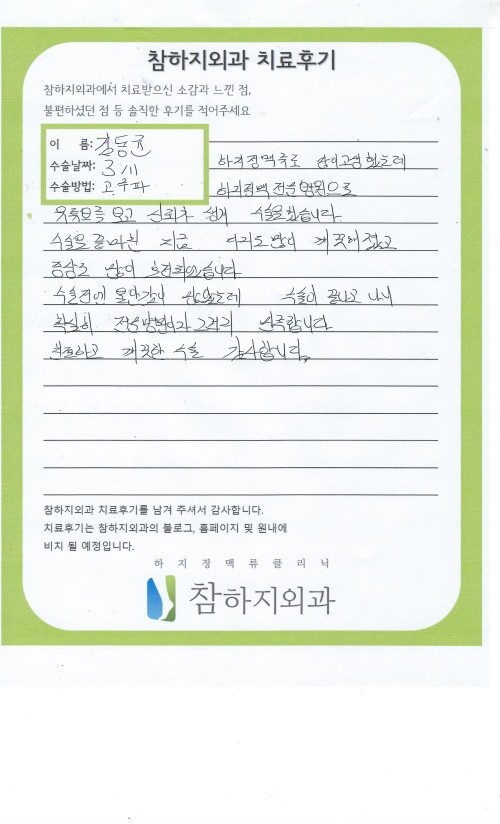 참하지외과 치료후기
참하지외과에서 치료받으신 소감과 느낀 점,
불편하셨던 점 등 솔직한 후기를 적어주세요
이 름: 김동균
수술날짜: 3/11
수술방법: 고주파
하지정맥류로 많이고생했는데
하지정맥 전문병원으로
유튜브를 보고 신뢰가 생겨 수술을했습니다
수술을 끝마친 지금 다리도 많이 깨끗해졌고
증상도 많이 호전되었습니다
수술전엔 불안감이 많았는데 수술이 끝나고 나니
확실히 전문병원이라 그런지 만족합니다
친절하고 깨끗한 수술 감사합니다.
참하지외과 치료후기를 남겨 주셔서 감사합니다.
치료후기는 참하지외과의 블로그, 홈페이지 및 원내에
비치 될 예정입니다.
하지정맥류클리닉
참하지외과